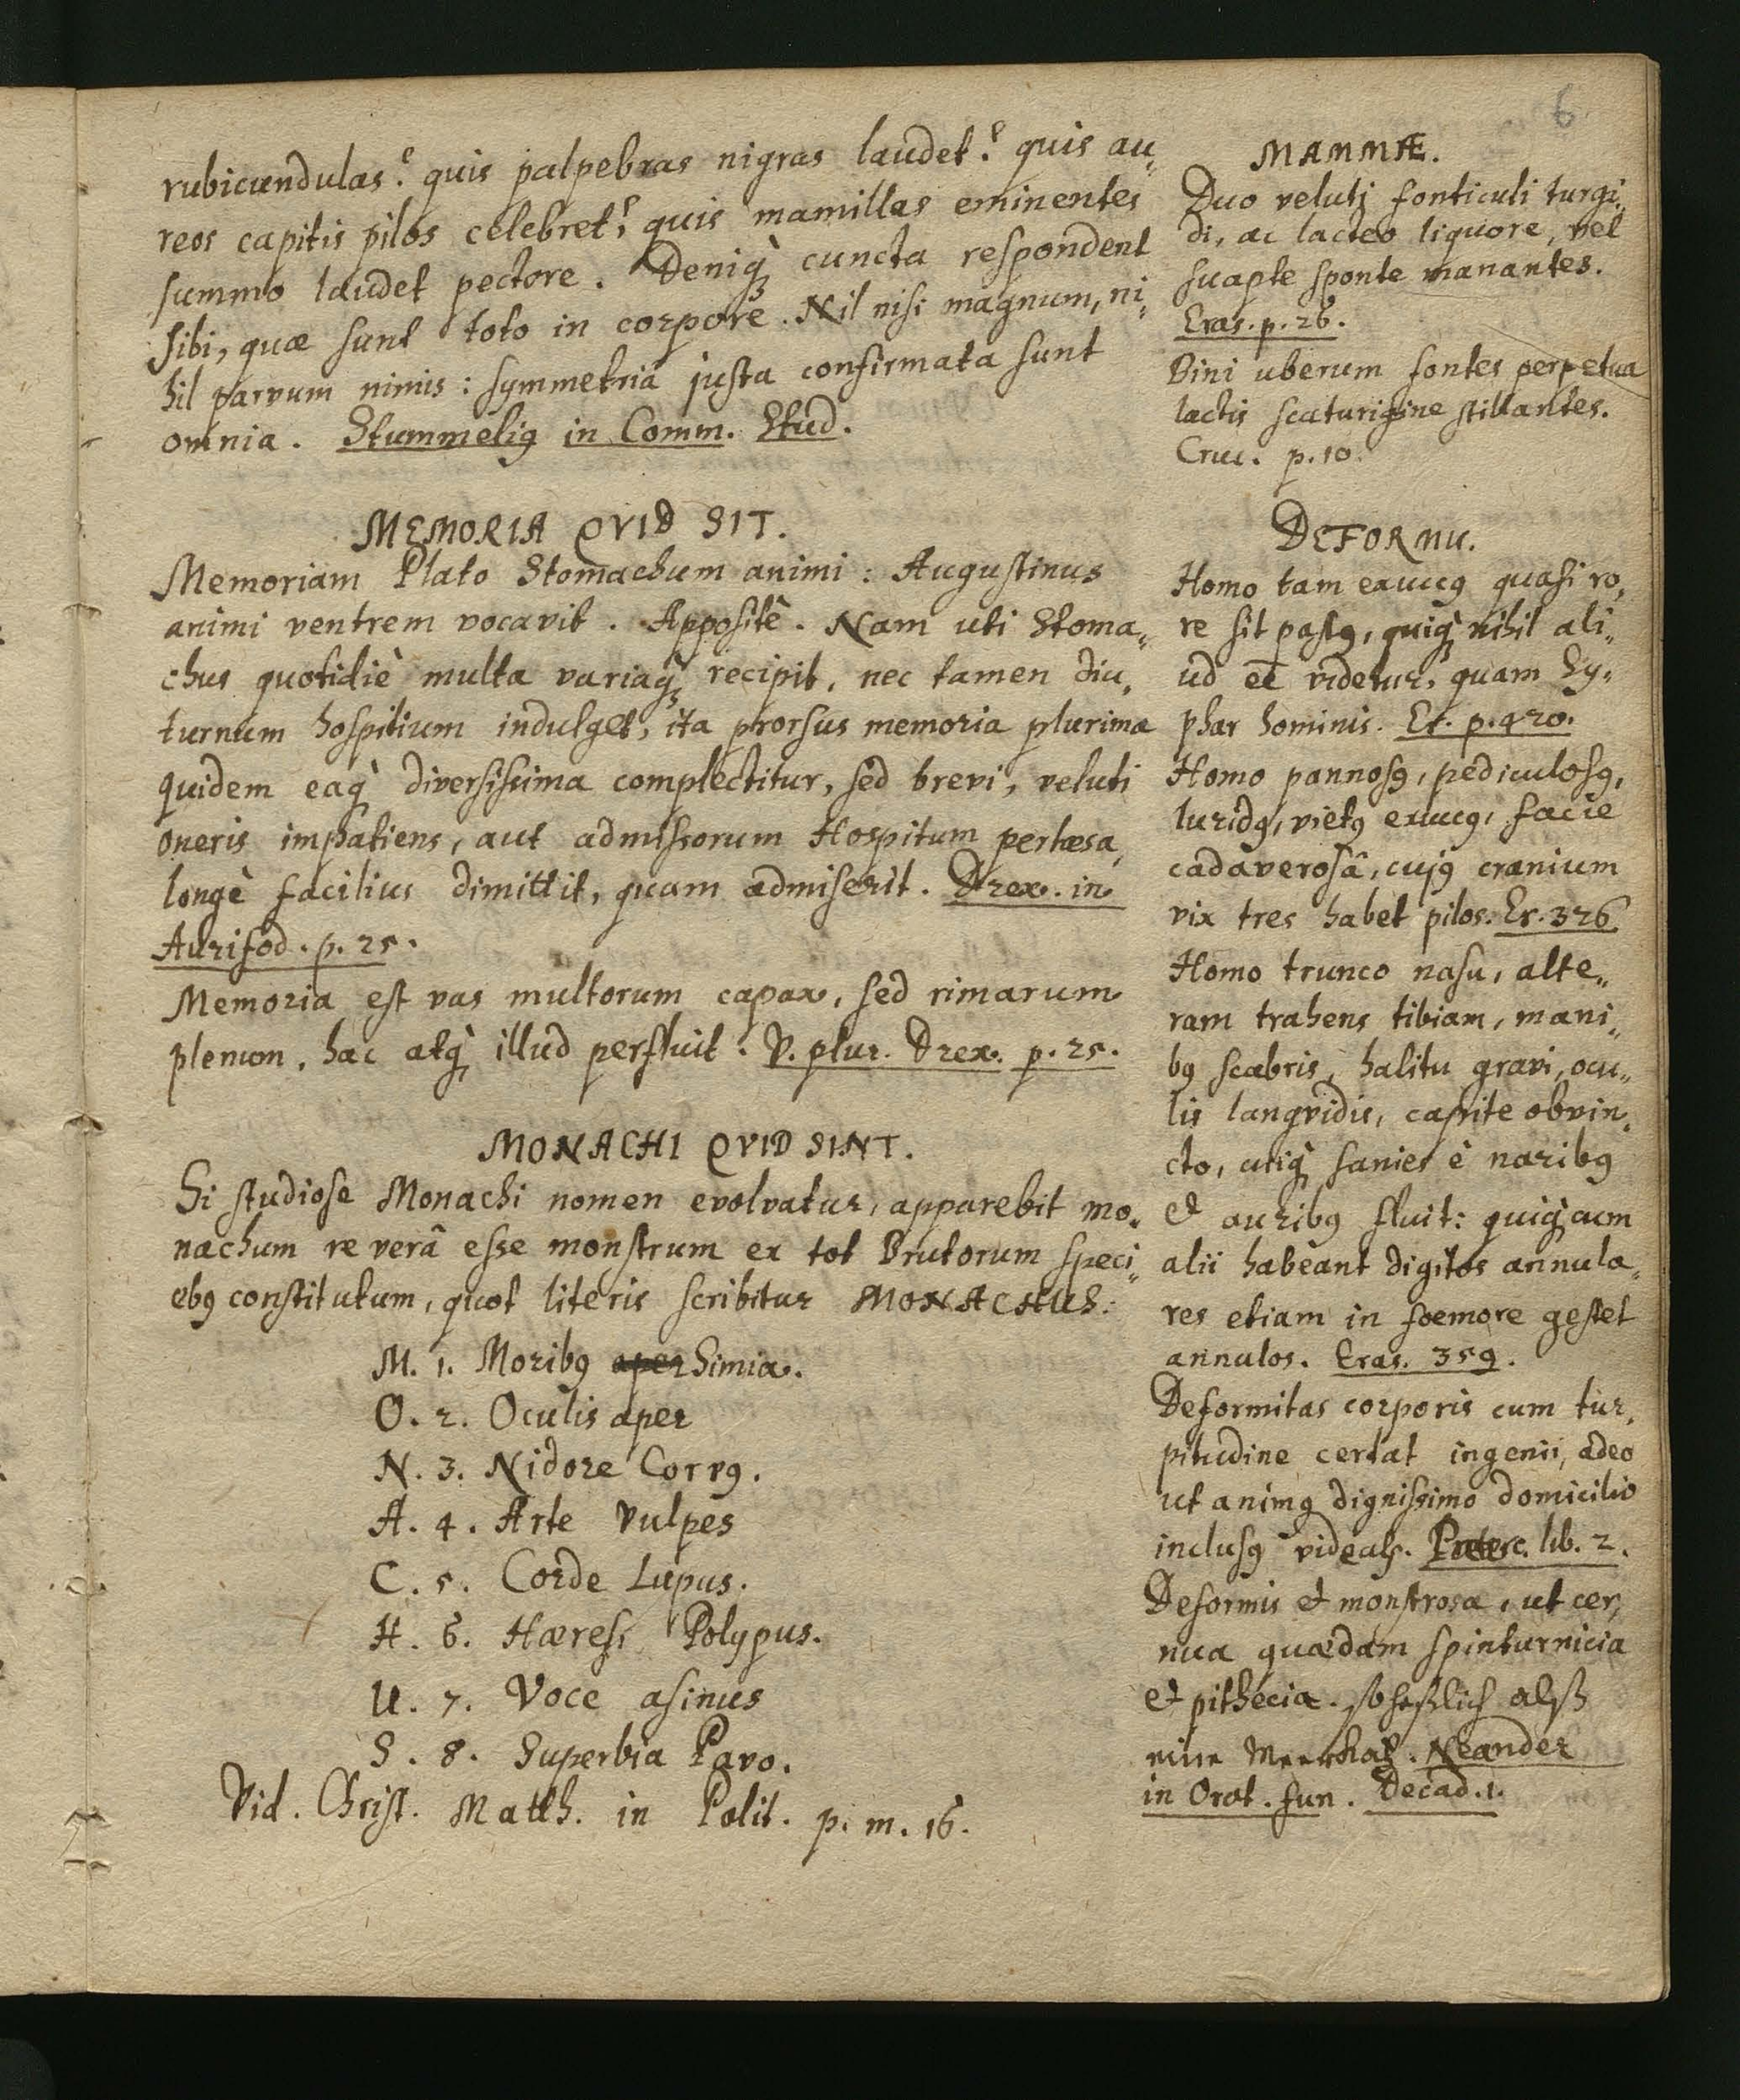 6
rubicundulas? quis palpebras nigras laudet? quis au„
reos capitis pilos celebret? quis mamillas eminentes
summo laudet pectore. Deniq; cuncta respondent
sibi, quæ sunt toto in corpore. Nil nisi magnum, ni„
hil parvum nimis: symmetriâ justa confirmata sunt
omnia. Stummelig in Comm. Stud.
MEMORIA QVID SIT.
Memoriam Plato Stomachum animi: Augustinus
animi ventrem vocavit. Appositè. Nam uti Stoma„
chus quotidiè multa variaq; recipit, nec tamen diu„
turnum hospitium indulget, ita prorsus memoria plurima
quidem eaq; diversissima complectitur, sed brevi, veluti
oneris impatiens, aut admissorum Hospitum pertæsa,
longè facilius dimittit, quam admiserit. Drex. in
Aurifod. p. 25.
Memoria est vas multorum capax, sed rimarum
plenum, hac atq; illud perfluit. V. plur. Drex. p. 25.
MONACHI QVID SINT.
Si studiose Monachi nomen evolvatur, apparebit mo„
nachum re verâ esse monstrum ex tot Brutorum speci„
ebꝯ constitutum, quot literis scribitur MONACHUS:
M. 1. Moribꝯ aper Simia.
O. 2. Oculis aper
N. 3. Nidore Corvꝯ.
A. 4. Arte Vulpes
C. 5. Corde Lupus.
H. 6. Hæresi Polypus.
U. 7. Voce asinus
S. 8. Superbia Pavo.
Vid. Christ. Matth. in Polit. p. m. 16.
MAMMÆ.
Duo veluti fonticuli turgi„
di, ac lacteo liquore, vel
suapte sponte manantes.
Eras. p. 26.
Bini uberum fontes perpetua
lactis scaturigine stillantes.
Cruc. p. 10.
DEFORMIS.
Homo tam exuccꝯ quasi ro„
re sit pastꝯ, quiq; nihil ali„
ud eē videtur, quam Sy„
phar hominis. Er. p. 420.
Homo pannosꝯ, pediculosꝯ,
luridꝯ, vietꝯ exuccꝯ, facie
cadaverosâ, cujꝯ cranium
vix tres habet pilos. Er. 326.
Homo trunco nasu, alte„
ram trahens tibiam, mani„
bꝯ scabris, halitu gravi, ocu„
lis langvidis, capite obvin„
cto, utiq; sanies è naribꝯ
et auribꝯ fluit: quiq; cum
alii habeant digitos annula„
res etiam in foemore gestet
annulos. Eras. 359.
Deformitas corporis cum tur„
pitudine certat ingenii, adeo
ut animꝯ dignissimo domicilio
inclusꝯ videatr. Paterc. lib. 2.
Deformis et monstrosa, ut cer„
nua quædam spinturnicia
et pithecia. so heßlich alß
eine Meerkatz. Neander
in Orat. fun. Decad. 1.